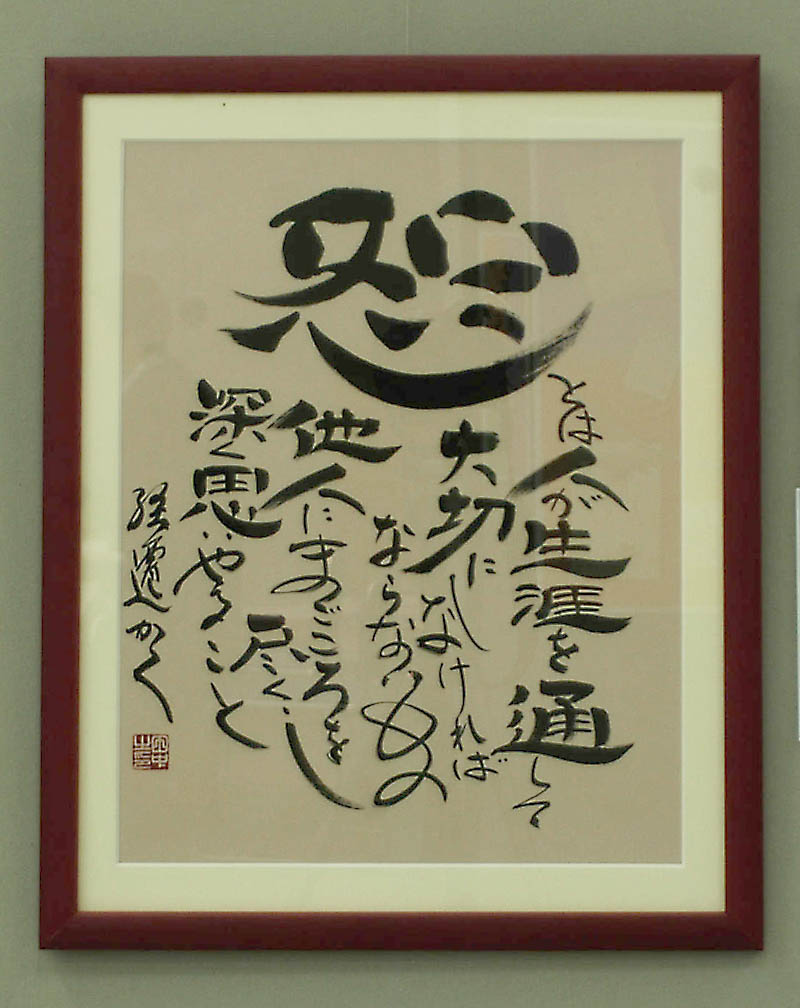 恕
とは人が生涯を通して
大切にしなければ
ならないもの
他人にまごころを
尽くし
深く思いやること
かく